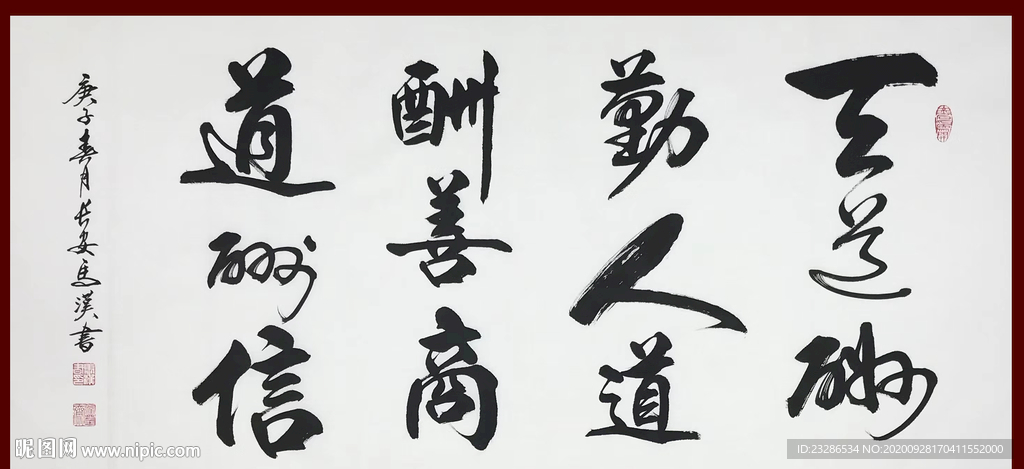 天道酬
勤人道
酬善商
道酬信
庚子春月长安马汉书
昵图网 www.nipic.com
ID:23286534 NO:20200928170411552000